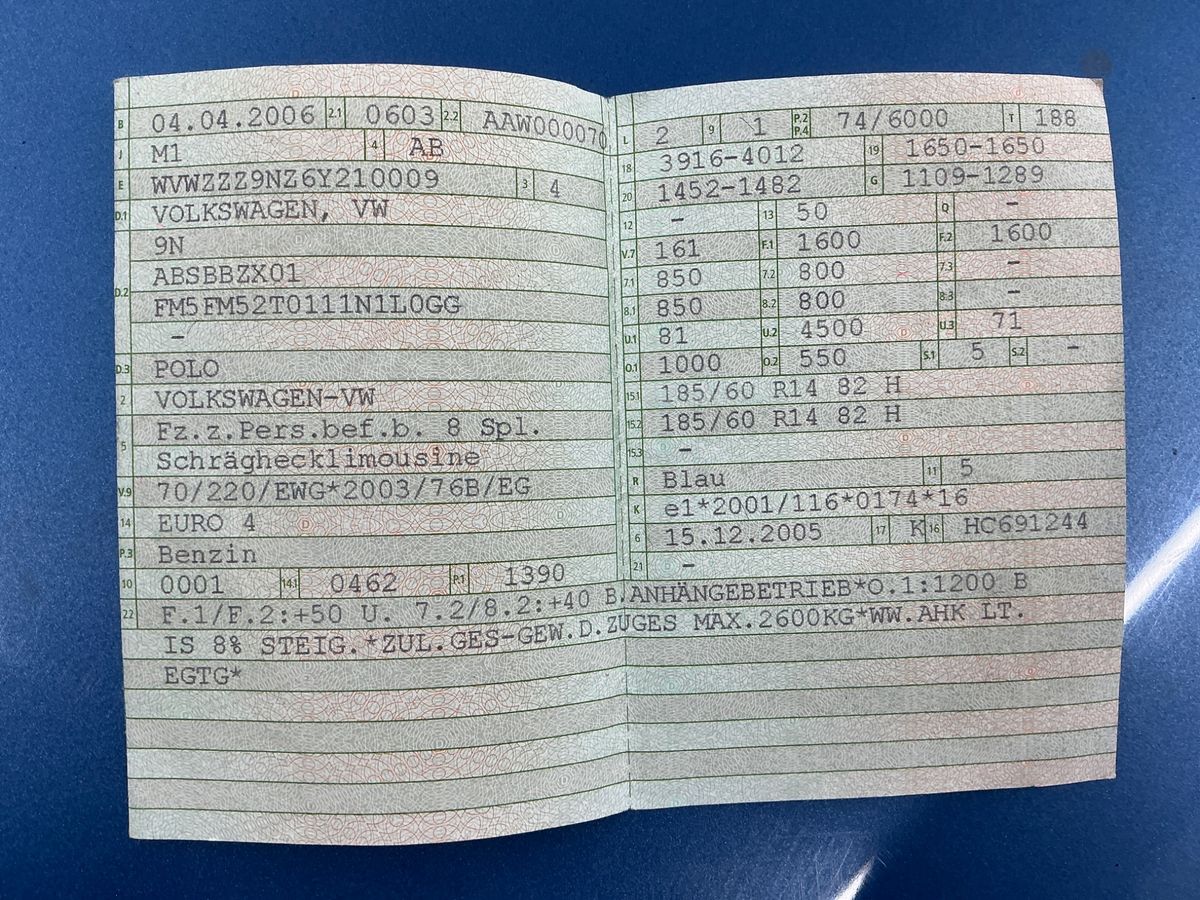 B 04.04.2006 2.1 0603 2.2 AAW000070
J M1 4 AB
E WVWZZZ9NZ6Y210009 3 4
D.1 VOLKSWAGEN, VW
9N
D.2 ABSBBZX01
FM5FM52T0111N1L0GG
-
D.3 POLO
2 VOLKSWAGEN-VW
5 Fz.z.Pers.bef.b. 8 Spl.
Schräghecklimousine
V.9 70/220/EWG*2003/76B/EG
14 EURO 4
P.3 Benzin
10 0001 14.1 0462 P.1 1390
L 2 9 1 P.2 P.4 74/6000 T 188
18 3916-4012 19 1650-1650
20 1452-1482 G 1109-1289
12 - 13 50 Q -
V.7 161 F.1 1600 F.2 1600
7.1 850 7.2 800 7.3 -
8.1 850 8.2 800 8.3 -
U.1 81 U.2 4500 U.3 71
O.1 1000 O.2 550 S.1 5 S.2 -
15.1 185/60 R14 82 H
15.2 185/60 R14 82 H
15.3 -
R Blau 11 5
K e1*2001/116*0174*16
6 15.12.2005 17 K 16 HC691244
21 -
22 F.1/F.2:+50 U. 7.2/8.2:+40 B.ANHÄNGEBETRIEB*O.1:1200 B
IS 8% STEIG.*ZUL.GES-GEW.D.ZUGES MAX.2600KG*WW.AHK LT.
EGTG*